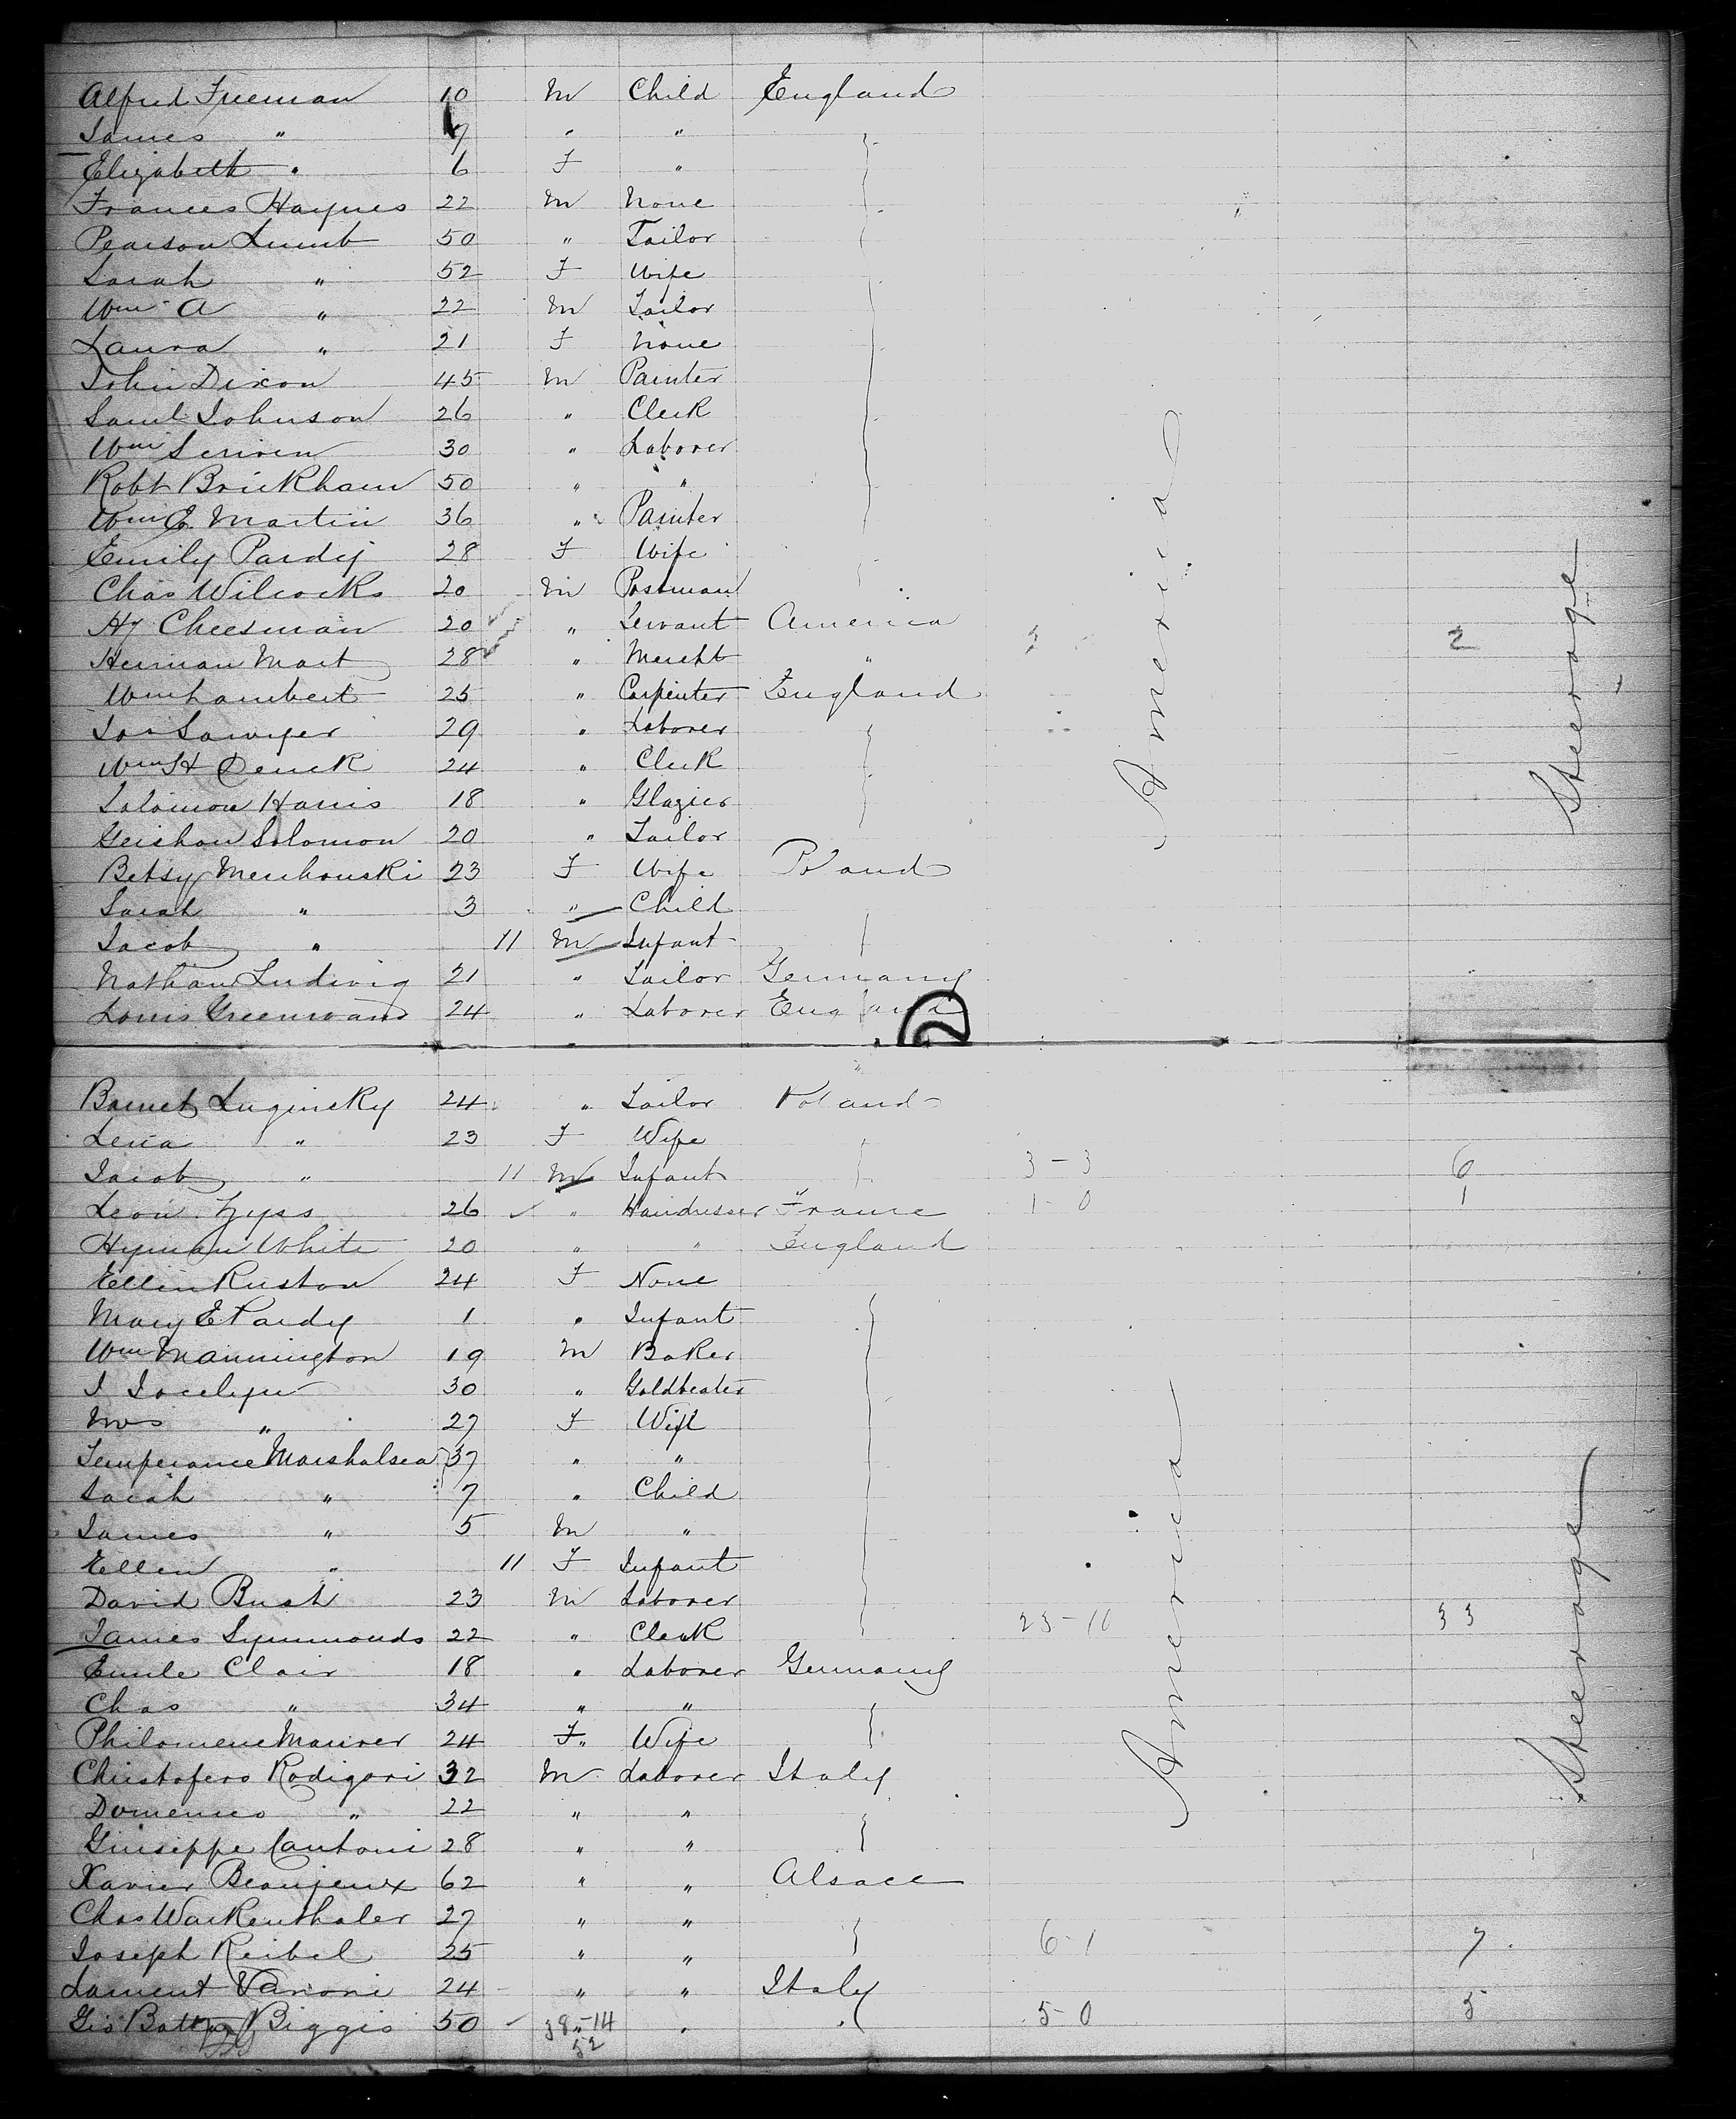 Alfred Freeman 10 M Child England
James " 9 " "
Elizabeth " 6 F "
Frances Haynes 22 M None
Pearson Lumb 50 " Tailor
Sarah " 52 F Wife
Wm A " 22 M Tailor
Laura " 21 F None
John Dixon 45 M Painter
Saml Johnson 26 " Clerk
Wm Scriven 30 " Laborer
Robt Brickham 50 " "
Wm E. Martin 36 " Painter
Emily Pardy 28 F Wife
Chas Wilcocks 20 M Postman
Hy Cheesman 20 " Servant America
Herman Mart 28 " Mercht " 2
Wm Lambert 25 " Carpenter England
Jos Sawyer 29 " Laborer
Wm H 24 " Clerk
Solomon Harris 18 " Glazier
Gershon Solomon 20 " Tailor
Betsy Menchouski 23 F Wife Poland
Sarah " 3 " Child
Jacob " 11 M Infant
Nathan Ludwig 21 " Tailor Germany
Louis Greenwand 24 " Laborer England
America
Steerage
Barnet Luginsky 24 " Tailor Poland
Lena " 23 F Wife
Jacob " 11 M Infant 3-3 6
Leon Zyss 26 " Hairdresser France 1-0 1
Hyman White 20 " " England
Ellen Ruston 24 F None
Mary E Pardy 1 " Infant
Wm Mannington 19 M Baker
J Jocelyn 30 " Goldbeater
Mrs " 27 F Wife
Temperance Marshalsea 37 " "
Sarah " 7 " Child
James " 5 M "
Ellen " 11 F Infant
David Bush 23 M Laborer
James Symmonds 22 " Clerk 23-10 33
Emile Clair 18 " Laborer Germany
Chas " 34 " "
Philomene Maurer 24 F " Wife
Christofero Rodigari 32 M Laborer Italy
Domenico " 22 " "
Giuseppe Cantoni 28 " "
Xavier Beaujeux 62 " " Alsace
Chas Warkenthaler 27 " "
Joseph Reibel 25 " " 6-1 7
Lament Vanoni 24 " " Italy
Gio Batta Biggio 50 38-14 " " 5-0 5
52
America
Steerage